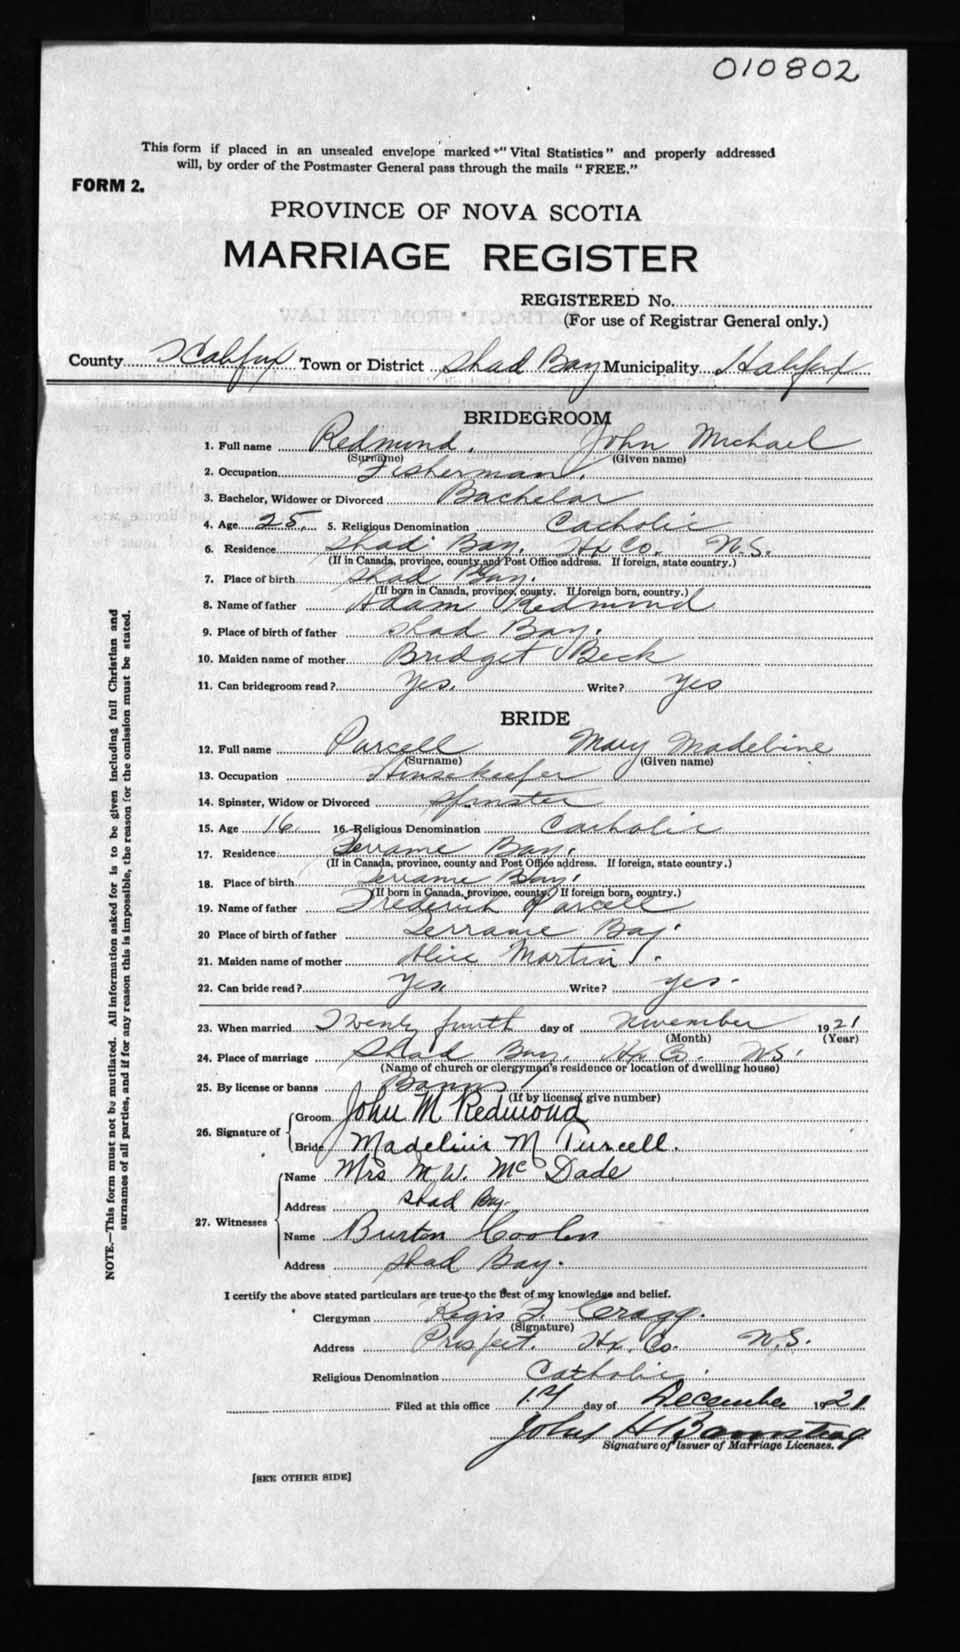 010802
This form if placed in an unsealed envelope marked "Vital Statistics" and properly addressed
will, by order of the Postmaster General pass through the mails "FREE."
FORM 2.
PROVINCE OF NOVA SCOTIA
MARRIAGE REGISTER
REGISTERED No.
(For use of Registrar General only.)
County Halifax Town or District Shad Bay Municipality Halifax
BRIDEGROOM
1. Full name Redmond, John Michael
(Surname) (Given name)
2. Occupation Fisherman.
3. Bachelor, Widower or Divorced Bachelor
4. Age 25. 5. Religious Denomination Catholic
6. Residence Shad Bay, Hx Co. N.S.
(If in Canada, province, county and Post Office address. If foreign, state country.)
7. Place of birth Shad Bay.
(If born in Canada, province, county. If foreign born, country.)
8. Name of father Adam Redmond
9. Place of birth of father Shad Bay.
10. Maiden name of mother Bridget Beck
11. Can bridegroom read? Yes. Write? Yes
BRIDE
12. Full name Purcell Mary Madeline
(Surname) (Given name)
13. Occupation Housekeeper
14. Spinster, Widow or Divorced Spinster
15. Age 16. 16. Religious Denomination Catholic
17. Residence Terrance Bay.
(If in Canada, province, county and Post Office address. If foreign, state country.)
18. Place of birth Terrance Bay.
(If born in Canada, province, county. If foreign born, country.)
19. Name of father Frederick Purcell
20 Place of birth of father Terrance Bay.
21. Maiden name of mother Alice Martin.
22. Can bride read? Yes. Write? Yes.
23. When married Twenty fourth day of November 1921
(Month) (Year)
24. Place of marriage Shad Bay, Hx Co. N.S.
(Name of church or clergyman's residence or location of dwelling house)
25. By license or banns Banns
(If by license, give number)
26. Signature of Groom John M Redmond
Bride M Purcell.
27. Witnesses
Name Mrs M. W. McDade
Address Shad Bay.
Name Burton Coolen
Address Shad Bay.
I certify the above stated particulars are true to the best of my knowledge and belief.
Clergyman Cragg.
(Signature)
Address Prospect. Hx. Co. N.S.
Religious Denomination Catholic.
Filed at this office 17 day of December 1921
John H
Signature of Issuer of Marriage Licenses.
[SEE OTHER SIDE]
NOTE.—This form must not be mutilated. All information asked for is to be given including full Christian and
surnames of all parties, and if for any reason this is impossible, the reason for the omission must be stated.